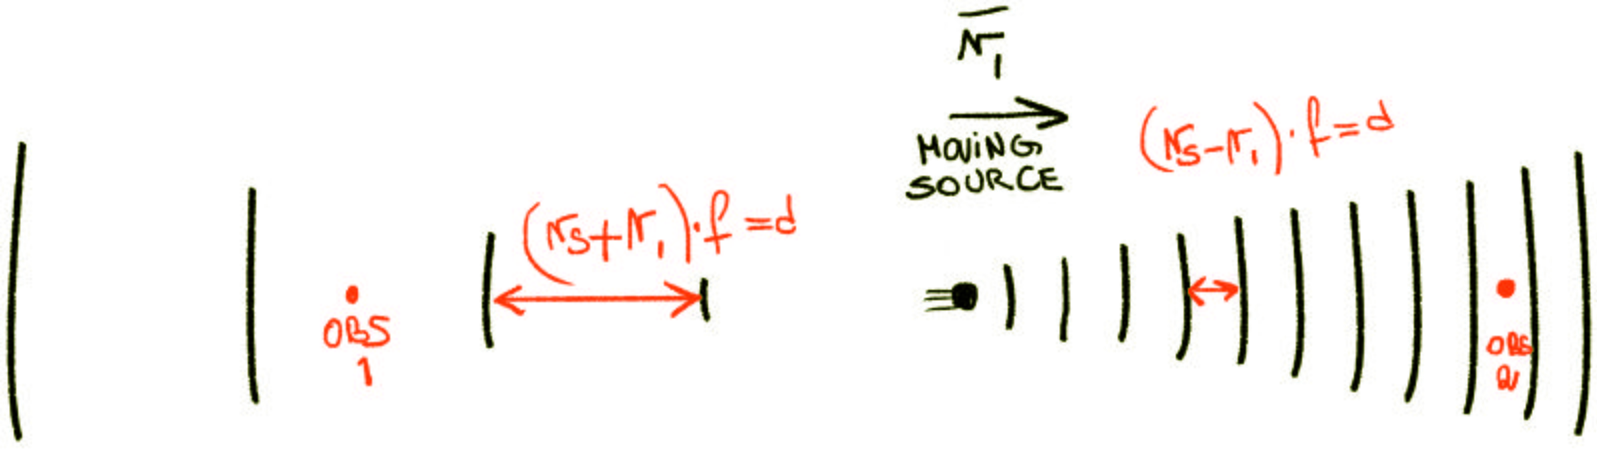 v₁
MOVING
SOURCE
(vs-v₁)·f=d
(vs+v₁)·f=d
OBS
1
OBS
2